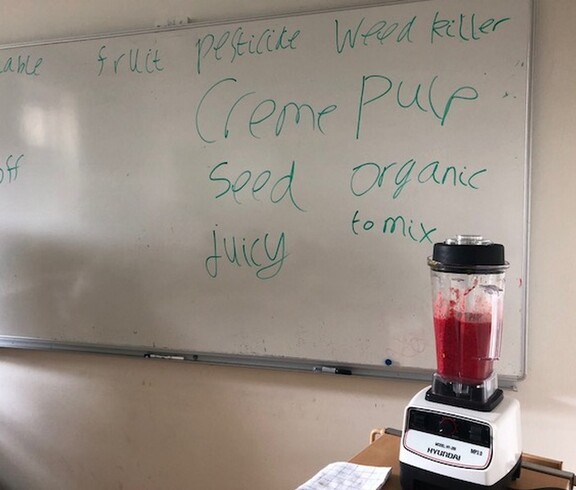 able fruit pesticide Weed killer
Creme pulp
off
seed organic
juicy to mix
HYUNDAI